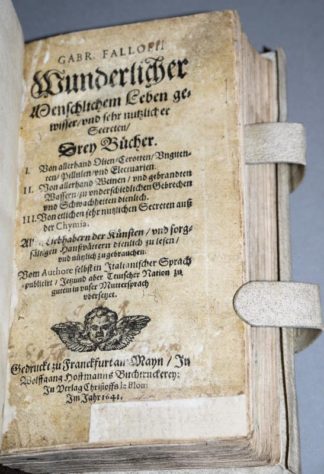 GABR. FALLOPII
Wunderlicher
Menschlichem Leben ge-
wisser/ und sehr nutzlicher
Secreten/
Drey Bücher.
I. Von allerhand Olien/ Cerotten/ Unguen-
ten/ Pillulen und Electuarien.
II. Von allerhand Weinen/ und gebrandten
Wassern/ zu underschiedlichen Gebrechen
und Schwachheiten dienlich.
III. Von etlichen sehr nutzlichen Secreten auß
der Chymia.
Allen Liebhabern der Künsten/ und sorg-
fältigen Haußvätteren dienlich zu lesen/
und nützlich zugebrauchen.
Vom Authore selbsten in Italianischer Sprach
publicirt/ Jetzund aber Teutscher Nation zu
gutem in unser Muttersprach
übersetzet.
Gedruckt zu Franckfurt am Mayn/ In
Wolffgang Hoffmanns Buchtruckerey:
In Verlag Christoffs le Blon:
Im Jahr 1641.